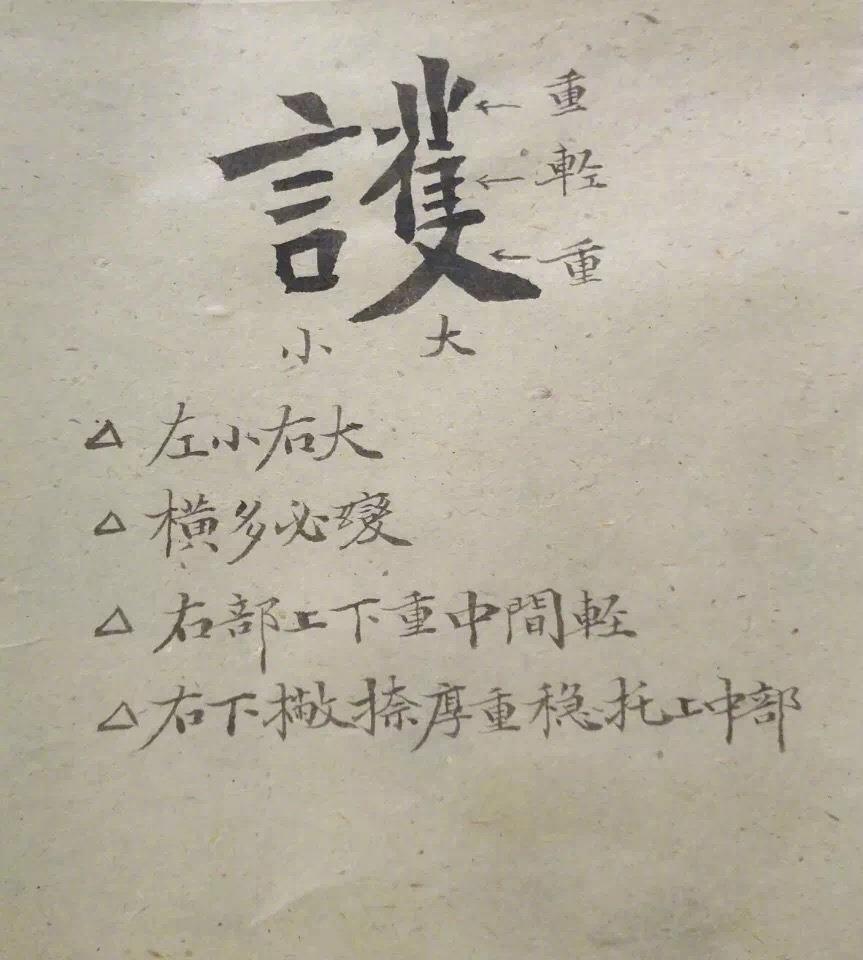 護
重
輕
重
小 大
△ 左小右大
△ 橫多必變
△ 右部上下重中間輕
△ 右下撇捺厚重穏托上中部